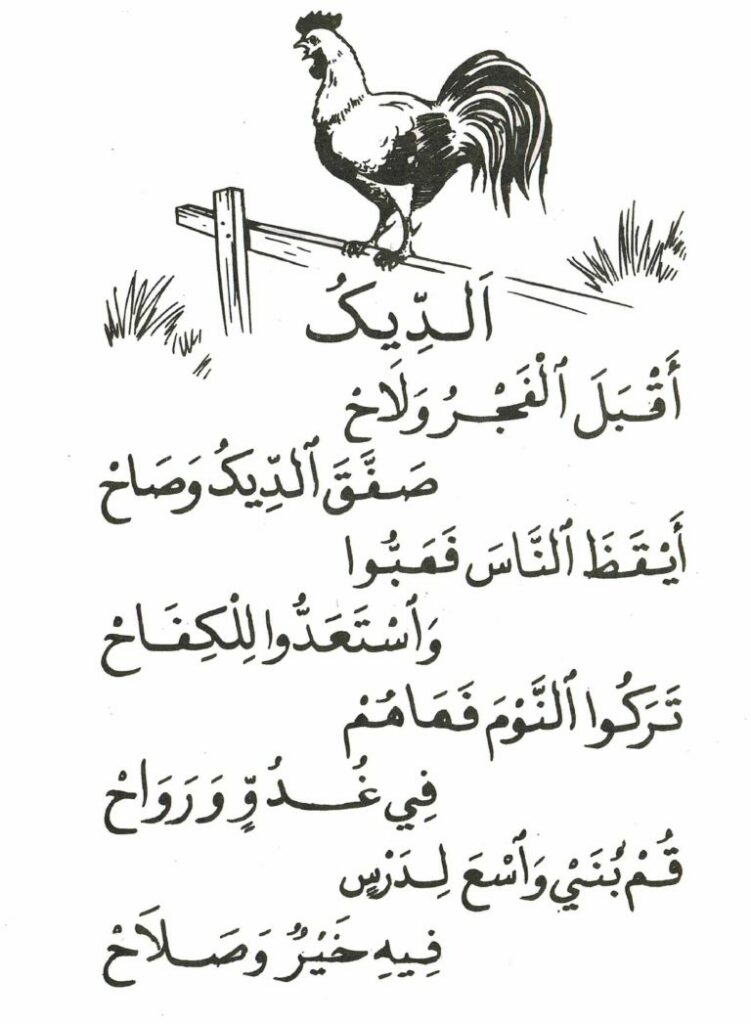 اَلدِّيكُ
أَقْبَلَ ٱلْفَجْرُ وَلَاحْ
صَفَّقَ ٱلدِّيكُ وَصَاحْ
أَيْقَظَ ٱلنَّاسَ فَهَبُّوا
وَٱسْتَعَدُّوا لِلْكِفَاحْ
تَرَكُوا ٱلنَّوْمَ فَهَاهُمْ
فِي غُدُوٍّ وَرَوَاحْ
قُمْ بُنَيْ وَٱسْعَ لِدَرْسٍ
فِيهِ خَيْرٌ وَصَلَاحْ